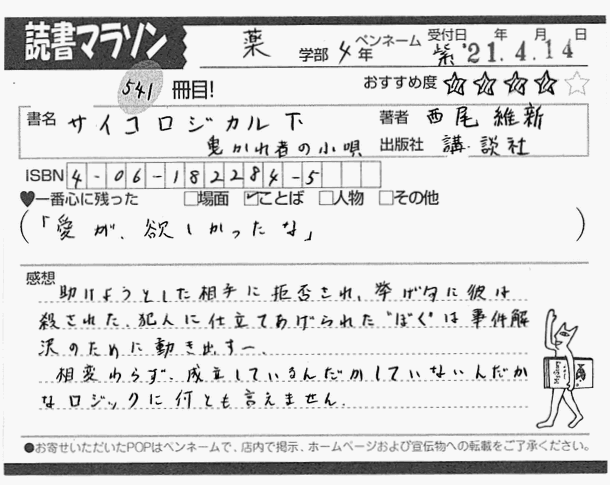 読書マラソン
薬 学部 4年 ペンネーム 紫 受付日 '21年4月14日
541 冊目! おすすめ度 ★★★★☆
書名 サイコロジカル 下 著者 西尾維新
曳かれ者の小唄 出版社 講談社
ISBN 4-06-182284-5
♥一番心に残った □場面 ☑ことば □人物 □その他
(「愛が、欲しかったな」)
感想
助けようとした相手に拒否され、挙げ句に彼は
殺された。犯人に仕立てあげられた"ぼく"は事件解
決のために動き出すー。
相変わらず、成立しているんだかしていないんだか
なロジックに何とも言えません。
●お寄せいただいたPOPはペンネームで、店内で掲示、ホームページおよび宣伝物への転載をご了承ください。